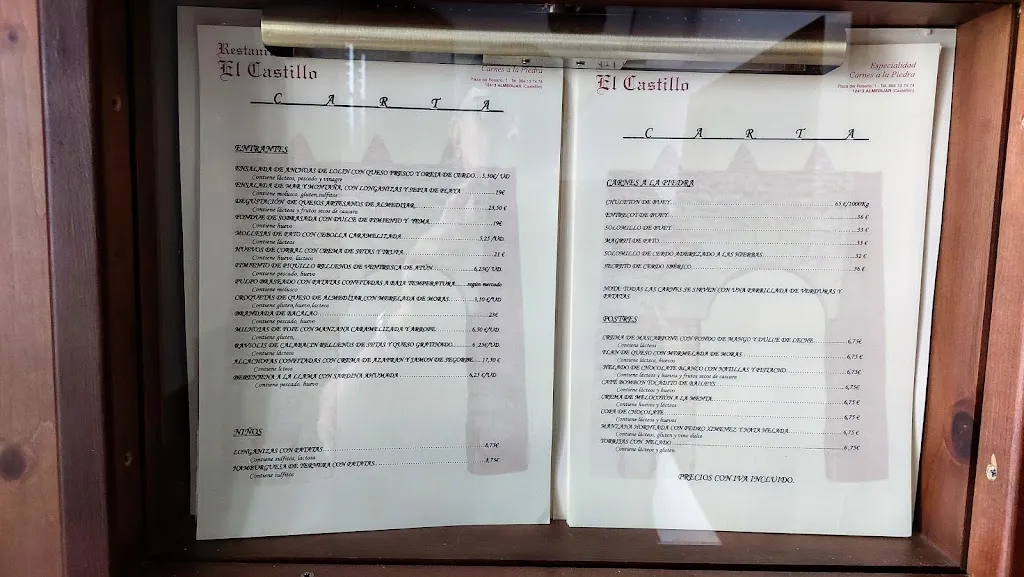 Restau
El Castillo
Carnes a la Piedra
12413 ALMEDIJAR (Castellón)
C A R T A
ENTRANTES
ENSALADA DE ANCHOAS DE LOLIN CON QUESO FRESCO Y OREJA DE CERDO....5,50€/UD
Contiene lácteos, pescado y vinagre
ENSALADA DE MAR Y MONTAÑA, CON LONGANIZAS Y SEPIA DE PLAYA..........19€
Contiene molusco, gluten, sulfitos
DEGUSTACIÓN DE QUESOS ARTESANOS DE ALMEDIJAR..........23,50 €
Contiene lácteos y frutos secos de cascara
FONDUE DE SOBRASADA CON DULCE DE PIMIENTO Y YEMA..........19€
Contiene huevo
MOLLEJAS DE PATO CON CEBOLLA CARAMELIZADA..........5,25 /UD.
Contiene lácteos
HUEVOS DE CORRAL CON CREMA DE SETAS Y TRUFA..........21 €
Contiene huevo, lácteos
PIMIENTO DE PIQUILLO RELLENOS DE VENTRESCA DE ATÚN..........6,25€/ UD.
Contiene pescado, huevo
PULPO BRASEADO CON PATATAS CONFITADAS A BAJA TEMPERATURA..........según mercado
Contiene molusco
CROQUETAS DE QUESO DE ALMEDÍJAR CON MERELADA DE MORAS..........3,10 €/UD
Contiene gluten, huevo, lácteos
BRANDADA DE BACALAO..........23€
Contiene pescado, huevo
MILHOJAS DE FOIE CON MANZANA CARAMELIZADA Y ARROPE..........6,50 €/UD
Contiene gluten,
RAVIOLIS DE CALABACIN RELLENOS DE SETAS Y QUESO GRATINADO..........6 25€/UD.
Contiene lácteos
ALCACHOFAS CONFITADAS CON CREMA DE AZAFRAN Y JAMON DE SEGORBE....17,50 €
Contiene lcteos
BERENJENA A LA LLAMA CON SARDINA AHUMADA..........6,25 €/UD
Contiene pescado, huevo
NIÑOS
LONGANIZAS CON PATATAS..........8,75€
Contiene sulfitos, lactosa
HAMBURGUESA DE TERNERA CON PATATAS..........8,75€
Contiene sulfitos
El Castillo
Especialidad
Carnes a la Piedra
12413 ALMEDIJAR (Castellón)
C A R T A
CARNES A LA PIEDRA
CHULETON DE BUEY..........65 €/1000Kg
ENTRECOT DE BUEY..........36 €
SOLOMILLO DE BUEY..........35 €
MAGRET DE PATO..........35 €
SOLOMILLO DE CERDO ADEREZADO A LAS HIERBAS..........32 €
SECRETO DE CERDO IBÉRICO..........36 €
NOTA: TODAS LAS CARNES SE SIRVEN CON UNA PARRILLADA DE VERDURAS Y
PATATAS.
POSTRES
CREMA DE MASCARPONE CON FONDO DE MANGO Y DULCE DE LECHE..........6,75€
Contiene lácteos
FLAN DE QUESO CON MERMELADA DE MORAS..........6,75 €
Contiene lácteos, huevos
HELADO DE CHOCOLATE BLANCO CON NATILLAS Y PISTACHO..........6,75€
Contiene lácteos y huevos y frutos secos de cascara
CAFÉ BOMBON TOCADITO DE BAILEYS..........6,75€
Contiene lácteos y huevo
CREMA DE MELOCOTÓN A LA MENTA..........6,75 €
Contiene huevos y lácteos
COPA DE CHOCOLATE..........6,75 €
Contiene lácteos y huevos
MANZANA HORNEADA CON PEDRO XIMENEZ Y NATA HELADA..........6,75 €
Contiene lácteos, gluten y vino dulce
TORRIJAS CON HELADO..........6,75€
Contiene lácteos y gluten
PRECIOS CON IVA INCLUIDO.